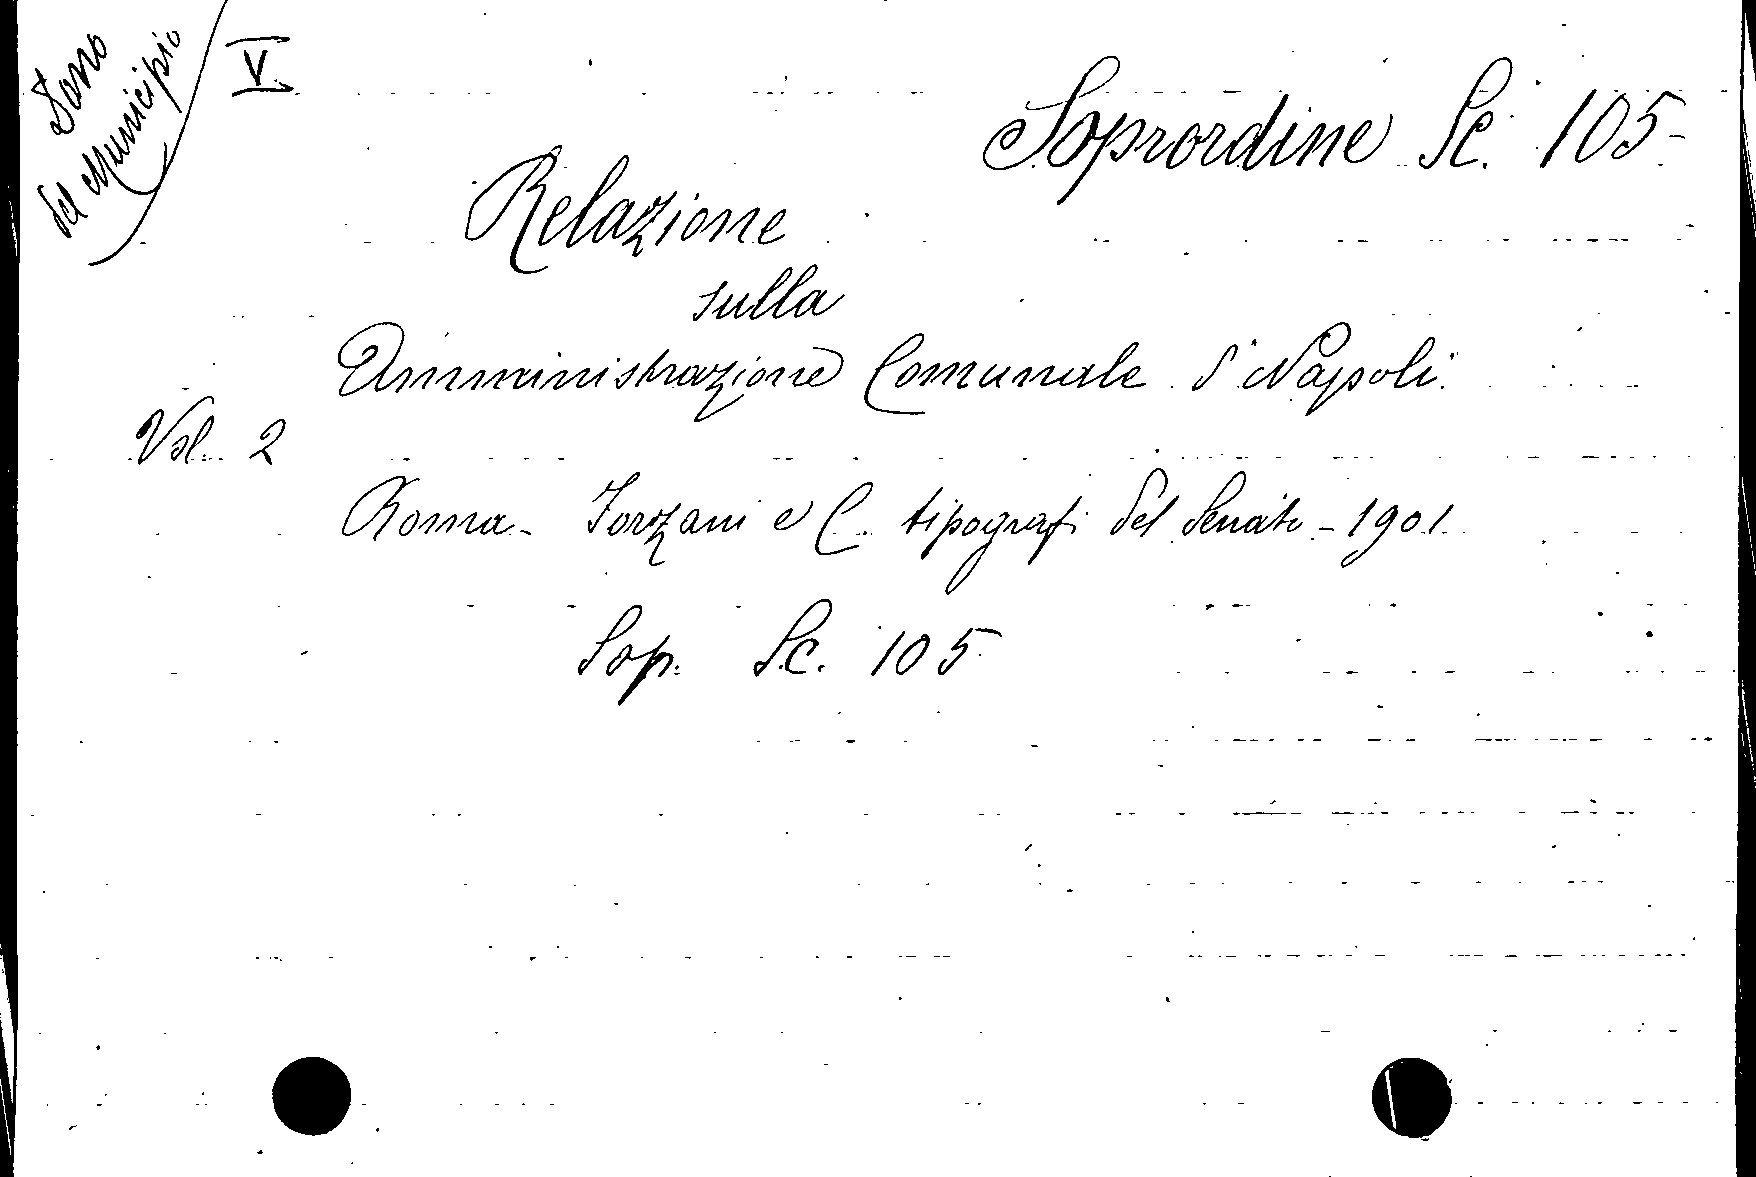 Dono
del Municipio
V
Soprordine Sc. 105
Relazione
sulla
Amministrazione Comunale di Napoli
Vol. 2
Roma - Forzani e C. tipografi del Senato - 1901
Sop. Sc. 105